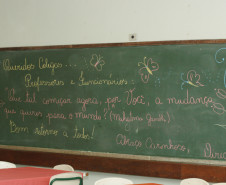 Queridos Colegas...
Professores e Funcionários:
Que tal começar agora, por Você, a mudança
que quero para o mundo? (Mahatma Gandhi)
Bom retorno a todos!
Abraço Carinhoso,